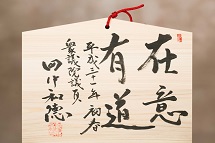 在意
有道
平成三十一年初春
衆議院議員
田中和德